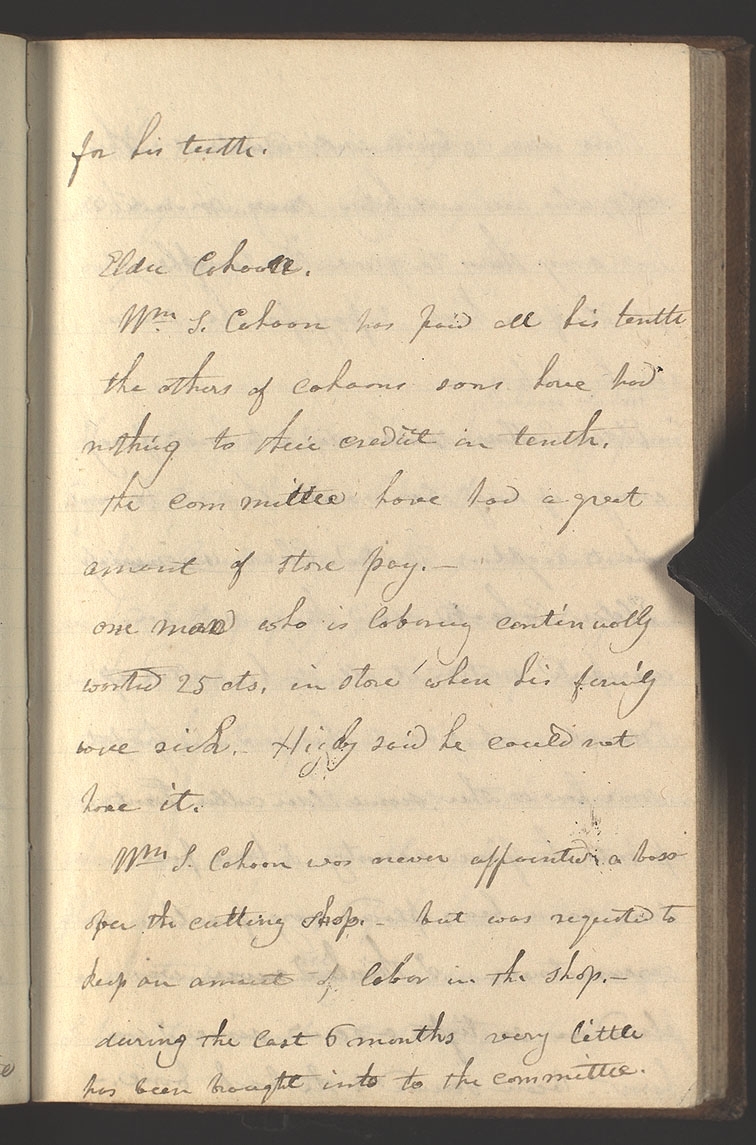 for his tenth.
Elder Cahoon.
Wm S. Cahoon has paid all his tenth
the others of cahoons sons have had
nothing to their credit in tenth.
the committee have had a great
amount of store pay.—
one man who is laboring continually
wanted 25 cts, in store when his family
were sick.— Higby said he could not
have it.
Wm S. Cahoon was never appointed a boss
over the cutting shop.— but was requested to
keep an amount of labor in the shop.—
during the last 6 months very little
has been brought into to the committee.